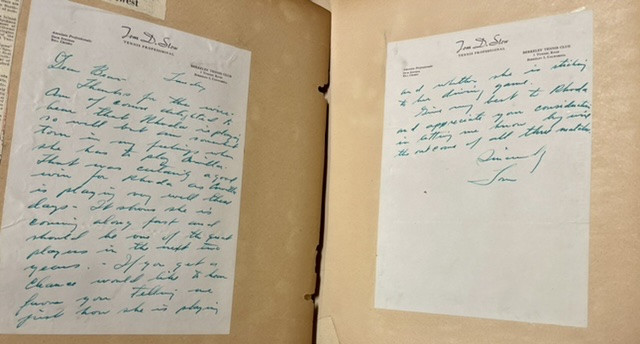 Tom D. Stow
TENNIS PROFESSIONAL
BERKELEY TENNIS CLUB
1 TUNNEL ROAD
BERKELEY 5, CALIFORNIA
Dear Bean- Tuesday
Thanks for the wire.
Am of course delighted to
hear that Rhoda is playing
so well but am somewhat
torn in my feelings when
she has to play
That was certainly a good
win for Rhoda as
is playing very well these
days - It shows she is
coming along fast and
should be one of the great
players in the next two
years. - If you get a
chance would like to hear
from you telling me
just how she is playing
Tom D. Stow
TENNIS PROFESSIONAL
BERKELEY TENNIS CLUB
1 TUNNEL ROAD
BERKELEY 5, CALIFORNIA
and whether she is sticking
to her driving game.
Give my best to Rhoda
and appreciate your consideration
in letting me know by wire
the outcome of all three matches.
Sincerely
Tom